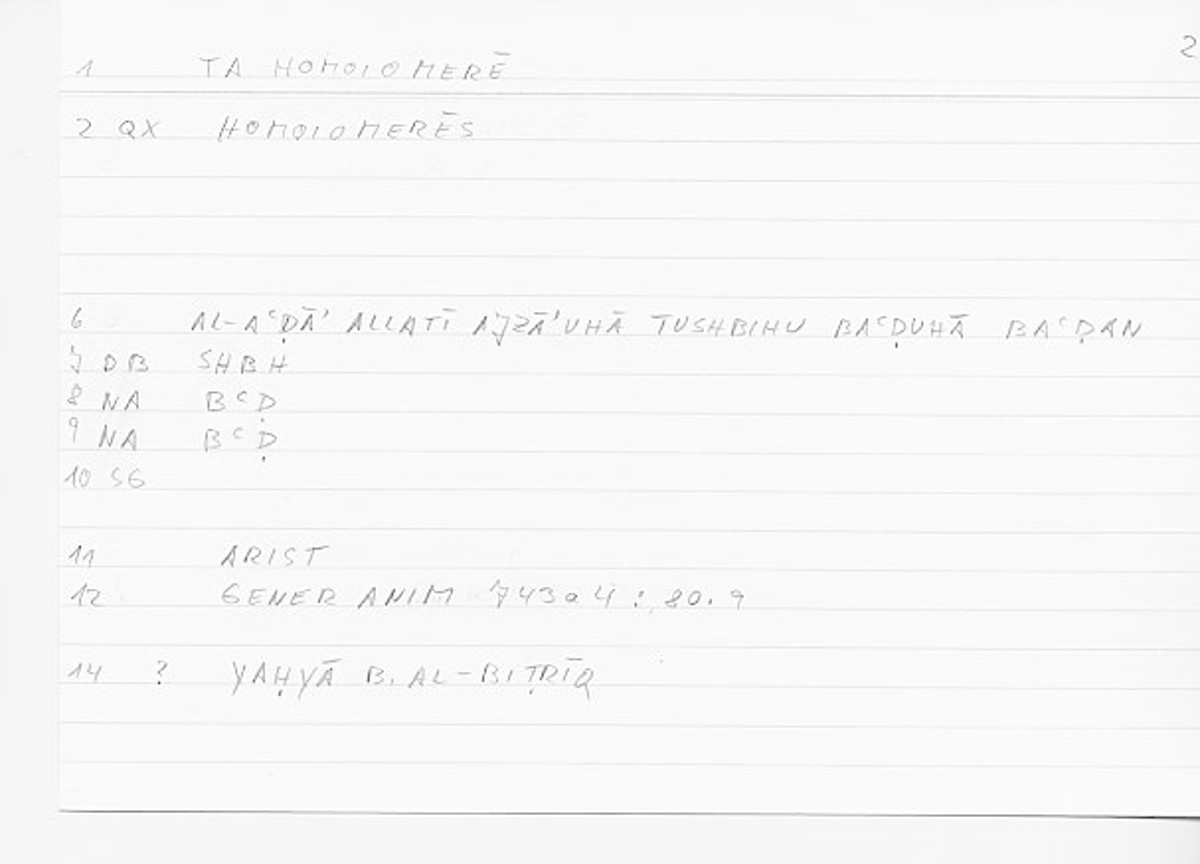 2
1 TA HOMOIOMERĒ
2 QX HOMOIOMERĒS
6 AL-AʿḌĀʾ ALLATĪ AJZĀʾUHĀ TUSHBIHU BAʿḌUHĀ BAʿḌAN
7 DB SHBH
8 NA BʿḌ
9 NA BʿḌ
10 SG
11 ARIST
12 GENER ANIM 743a4 : 80.9
14 ? YAḤYĀ B. AL-BIṬRĪQ